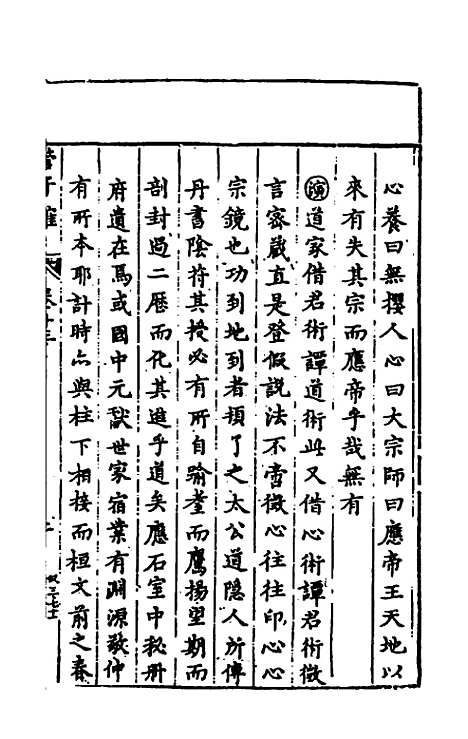 心養曰無攖人心曰大宗師曰應帝王天地以
來有失其宗而應帝乎哉無有
演道家借君術譚道術此又借心術譚君術微
言密藏直是登假說法不啻微心往往印心心
宗鏡也功到地到者頓了之太公道隱人所傳
丹書陰符其授必有所自踰耋而鷹揚望期而
剖封過二歷而化其進乎道矣應石室中秘册
府遺在焉或國中元獻世家宿業有淵源敬仲
有所本耶計時亦與柱下相接而桓文前之春
管子榷